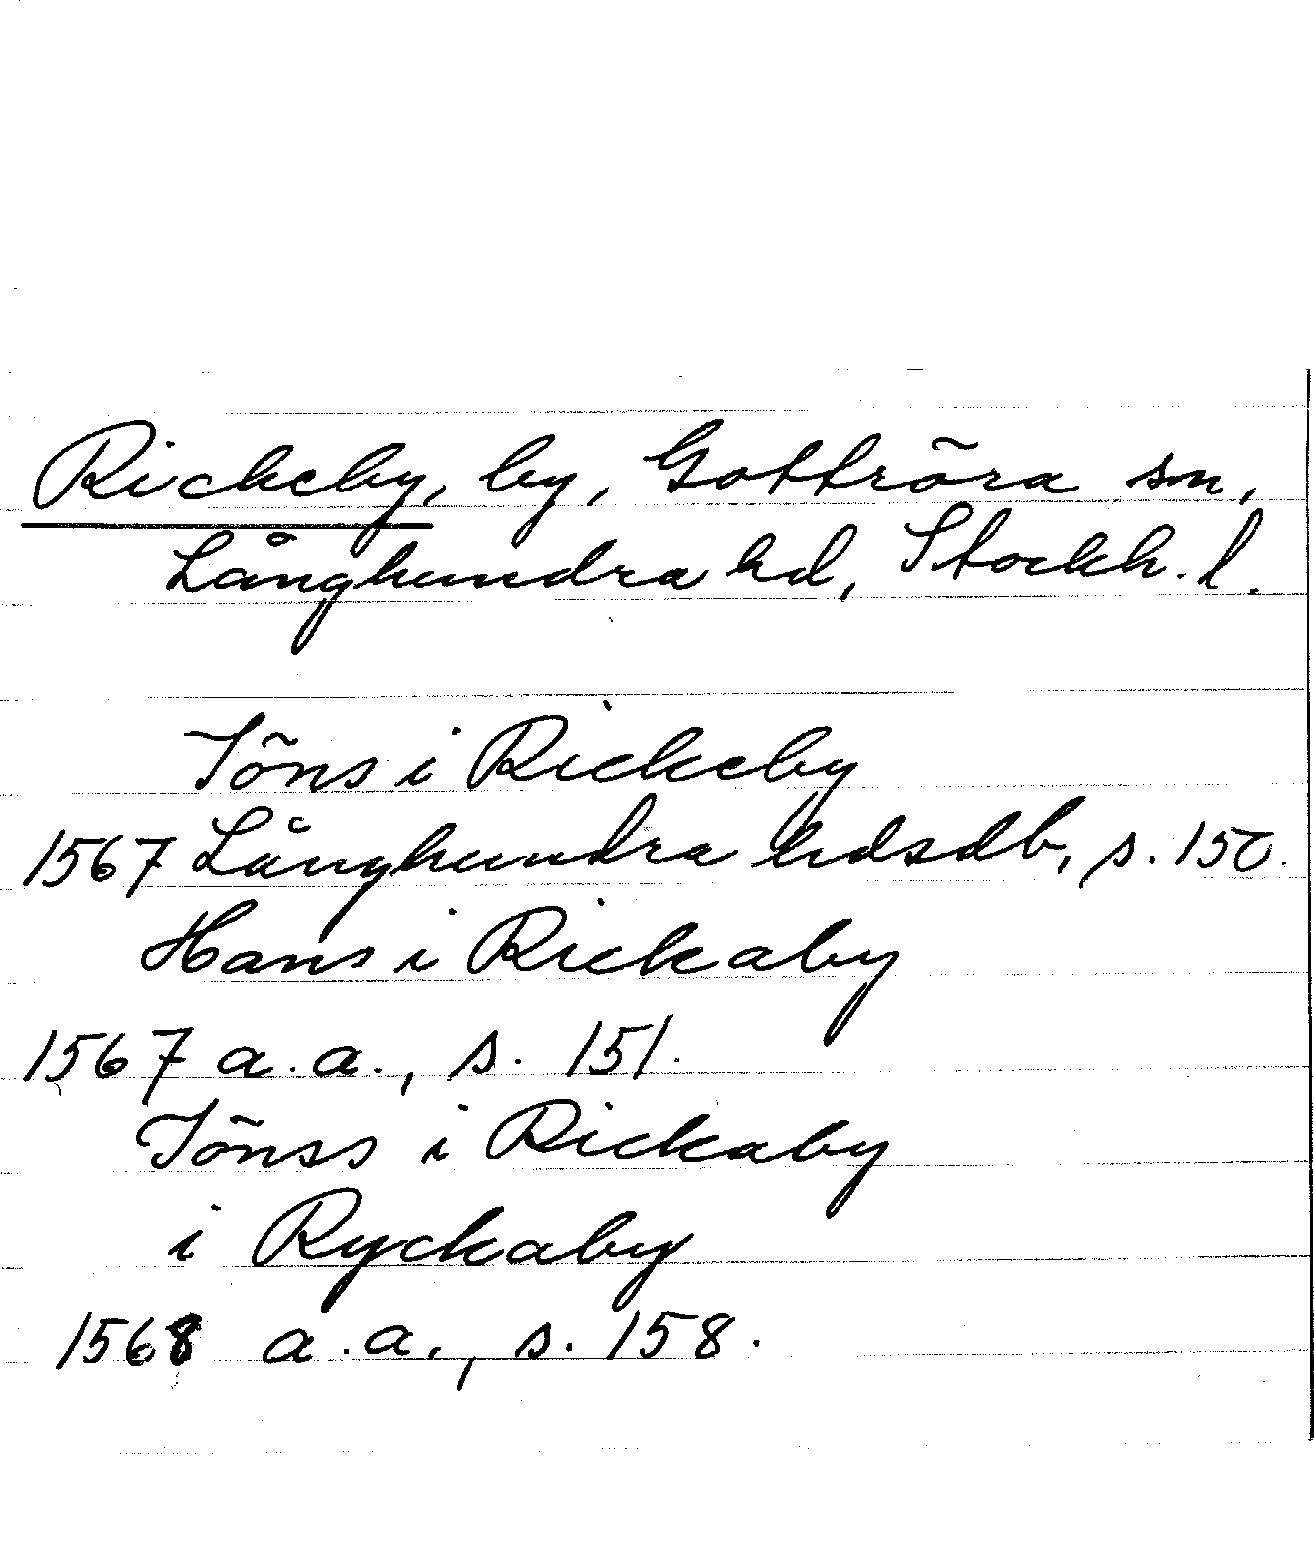 Rickeby, by, Gottröra sn,
Långhundra hd, Stockh. l.
Jöns i Rickeby
1567 Långhundra hdsdb, s. 150.
Hans i Rickaby
1567 a.a., s. 151.
Jönss i Rickaby
i Ryckaby
1568 a.a., s. 158.